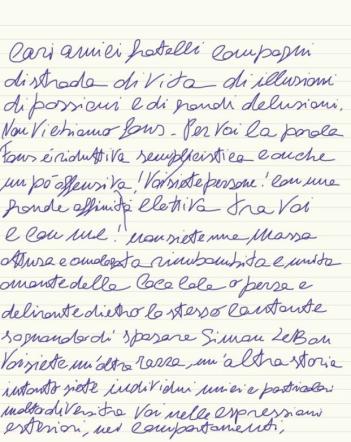 Cari amici fratelli compagni
di strada di vita di illusioni
di passioni e di grandi delusioni.
Non vi chiamo Fans. Per voi la parola
Fans è riduttiva semplicistica e anche
un pò offensiva! Voi siete persone! Con una
grande affinità elettiva tra voi
e con me! non siete una massa
ottusa e omologata rimbambita e unita
amante della Coca Cola o persa e
delirante dietro lo stesso cantante
sognando di sposare Simon LeBon
Voi siete un'altra razza, un'altra storia
intanto siete individui unici e particolari
molto diversi tra voi nelle espressioni
esteriori, nei comportamenti,